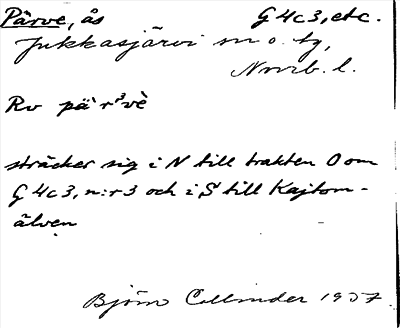 Pärve, ås G 4c3, etc.
Jukkasjärvi sn o. tg,
Norrb. l.
Rv pä`r³vè
sträcker sig i N till trakten O om
G 4c3, n:r 3 och i S till Kajtom-
älven
Björn Collinder 1937